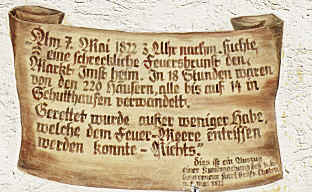 "Am 7. Mai 1822 3 Uhr nachm. suchte
eine schreckliche Feuersbrunst den
Markt Imst heim. In 18 Stunden waren
von den 220 Häusern, alle bis auf 14 in
Schutthaufen verwandelt.
Gerettet wurde außer weniger Habe,
welche dem Feuer-Meere entrissen
werden konnte – Nichts."
Dies ist ein Auszug
einer Kundmachung des k. k.
1822